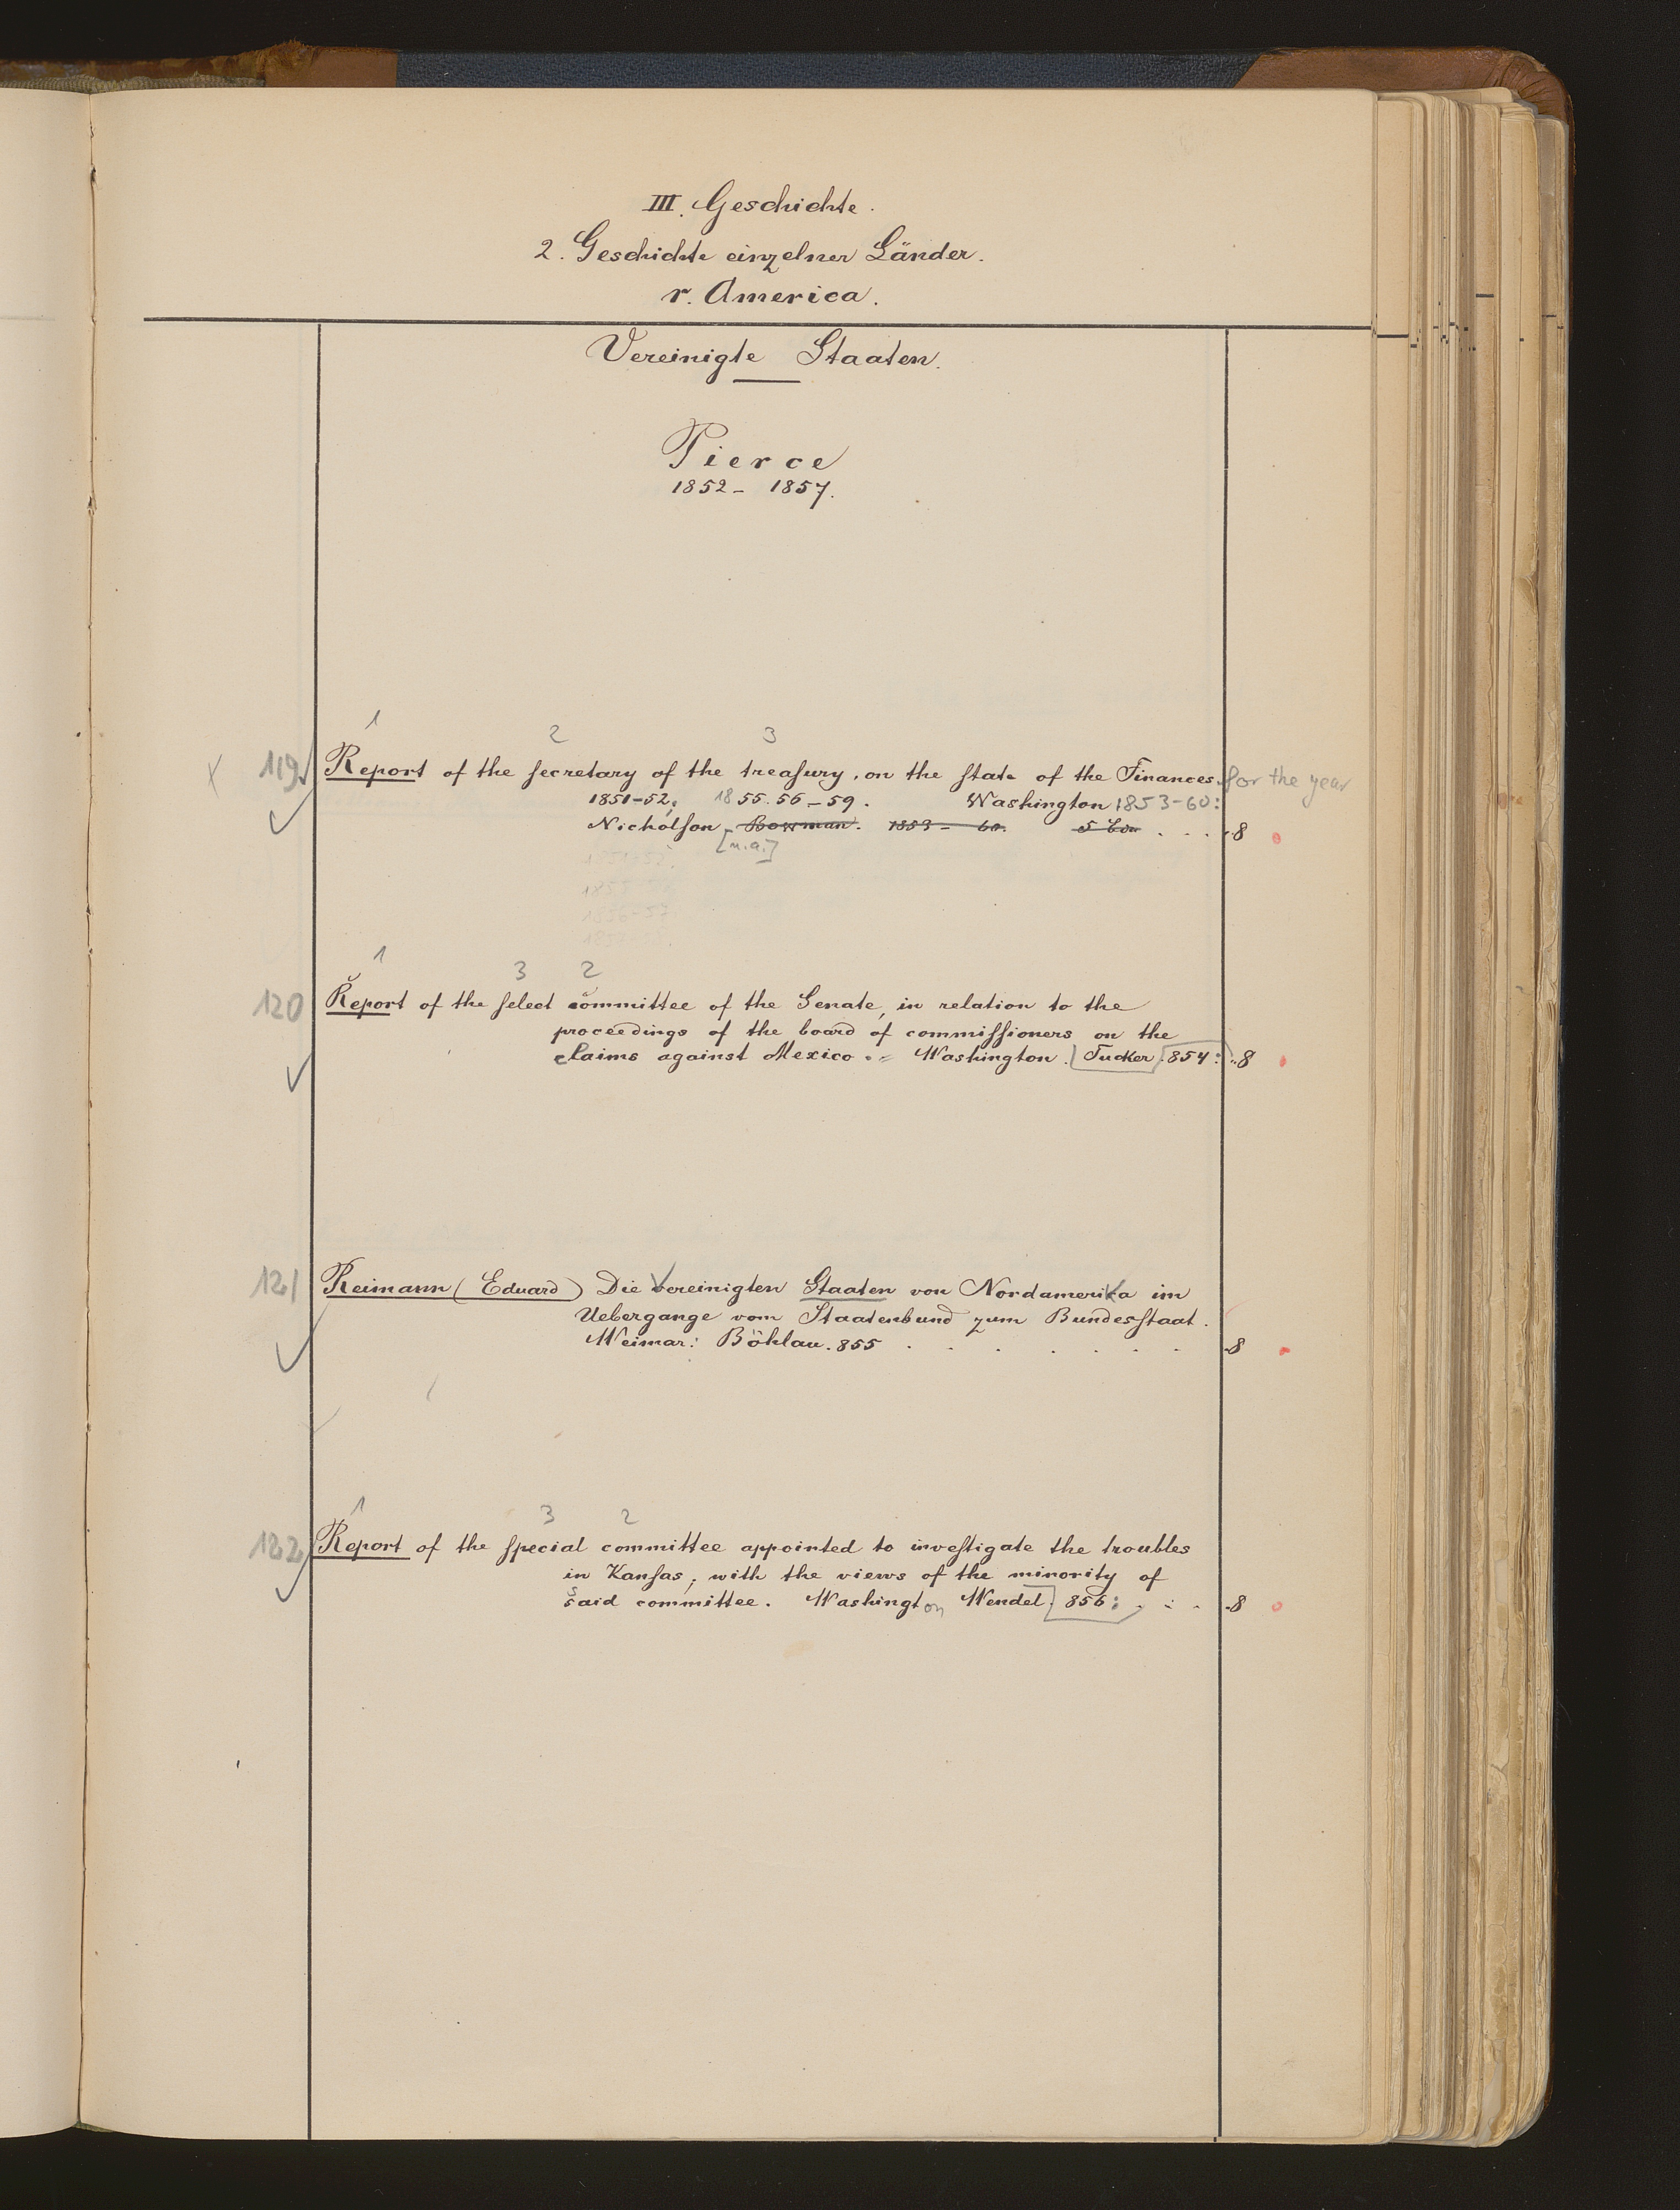 III. Geschichte.
2. Geschichte einzelner Länder.
r. America.
Vereinigte Staaten.
Pierce
1852 - 1857.
1 2 3
119 Report of the secretary of the treasury, on the state of the Finances. for the year
1851-52; 1855.56-59. Washington 1853-60:
Nicholson, Bowman. 1853 - 60. . . . 8
[u.a.]
1 3 2
120 Report of the select committee of the Senate, in relation to the
proceedings of the board of commissioners on the
claims against Mexico. = Washington. [Tucker] 854: .. 8
121 Reimann (Eduard) Die Vereinigten Staaten von Nordamerika im
Uebergange vom Staatenbund zum Bundesstaat.
Weimar: Böhlau. 855 . . . . . . . 8
1 3 2
122 Report of the special committee appointed to investigate the troubles
in Kansas; with the views of the minority of
said committee. Washington Wendel. 856: . . . 8